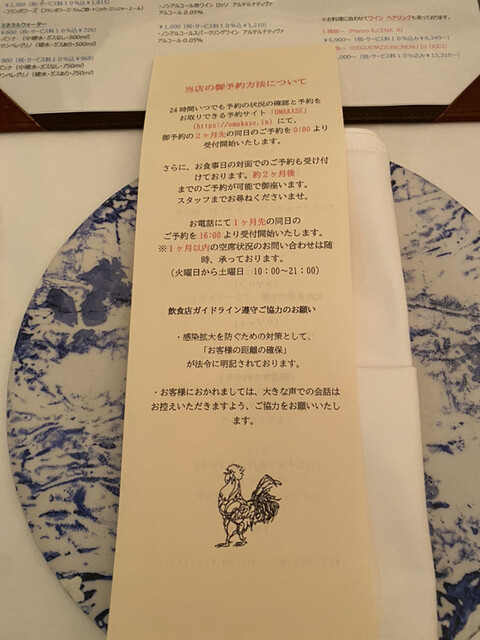 ・ノンアルコール赤ワイン アルテルナティヴァ
アルコール 0.05%
ミネラルウォーター
¥1,000 (税・サービス料10%込 ¥1,210)
・ノンアルコールスパークリングワイン アルテルナティヴァ
アルコール 0.05%
当店の御予約方法について
24時間いつでも予約の状況の確認と予約を
お取りできる予約サイト「OMAKASE」
(https://omakase.in) にて、
御予約の2ヶ月先の同日のご予約を0:00より
受付開始いたします。
さらに、お食事日の対面でのご予約も受け付
けております。約2ヶ月後
までのご予約が可能で御座います。
スタッフまでお尋ねくださいませ。
お電話にて1ヶ月先の同日の
ご予約を16:00より受付開始いたします。
※1ヶ月以内の空席状況のお問い合わせは随
時、承っております。
(火曜日から土曜日 10:00~21:00)
飲食店ガイドライン遵守ご協力のお願い
・感染拡大を防ぐための対策として、
「お客様の距離の確保」
が法令に明記されております。
・お客様におかれましては、大きな声での会話は
お控えいただきますよう、ご協力をお願いいたし
ます。